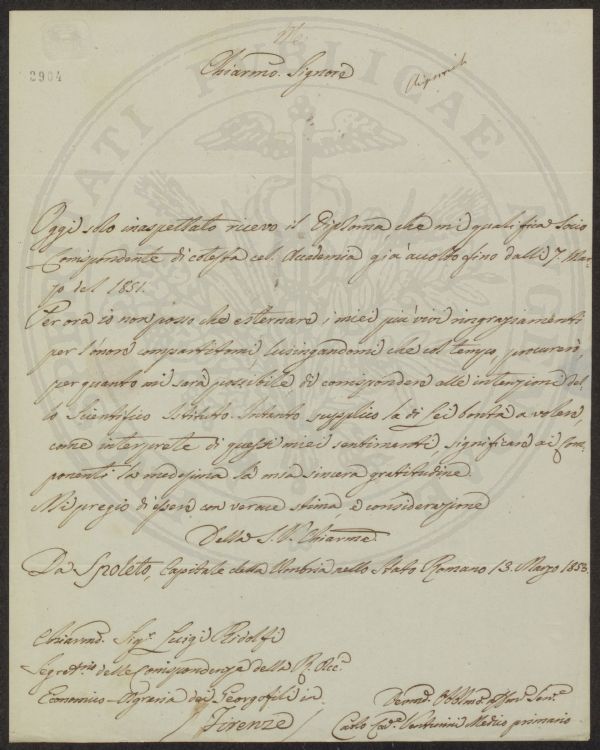 2904
Chiarmo. Signore
Oggi solo inaspettato ricevo il Diploma che mi qualifica Socio
Corrispondente di cotesta cel. Accademia già accolto fino dalli 7. Mar-
zo del 1851.
Per ora io non posso che esternare i miei più vivi ringraziamenti
per l'onore compartitomi, lusingandomi che col tempo, procurerò,
per quanto mi sarà possibile di corrispondere alle intenzioni del-
lo Scientifico Istituto. Intanto supplico la di Lei bontà a volere,
come interprete di questi miei sentimenti significare ai Com-
ponenti la medesima la mia sincera gratitudine.
Mi pregio di essere con verace stima, e considerazione
Della S. V. Chiarma.
Da Spoleto, Capitale della Umbria nello Stato Romano 13. Marzo 1853.
Chiarmo. Sigr. Luigi Ridolfi
Segretrio delle Corrispondenza della R. Acca.
Economico-Agraria dei Georgofili in
Firenze
Devmo. Obblmo. Servre.
Carlo Cave. Venturini Medico primario